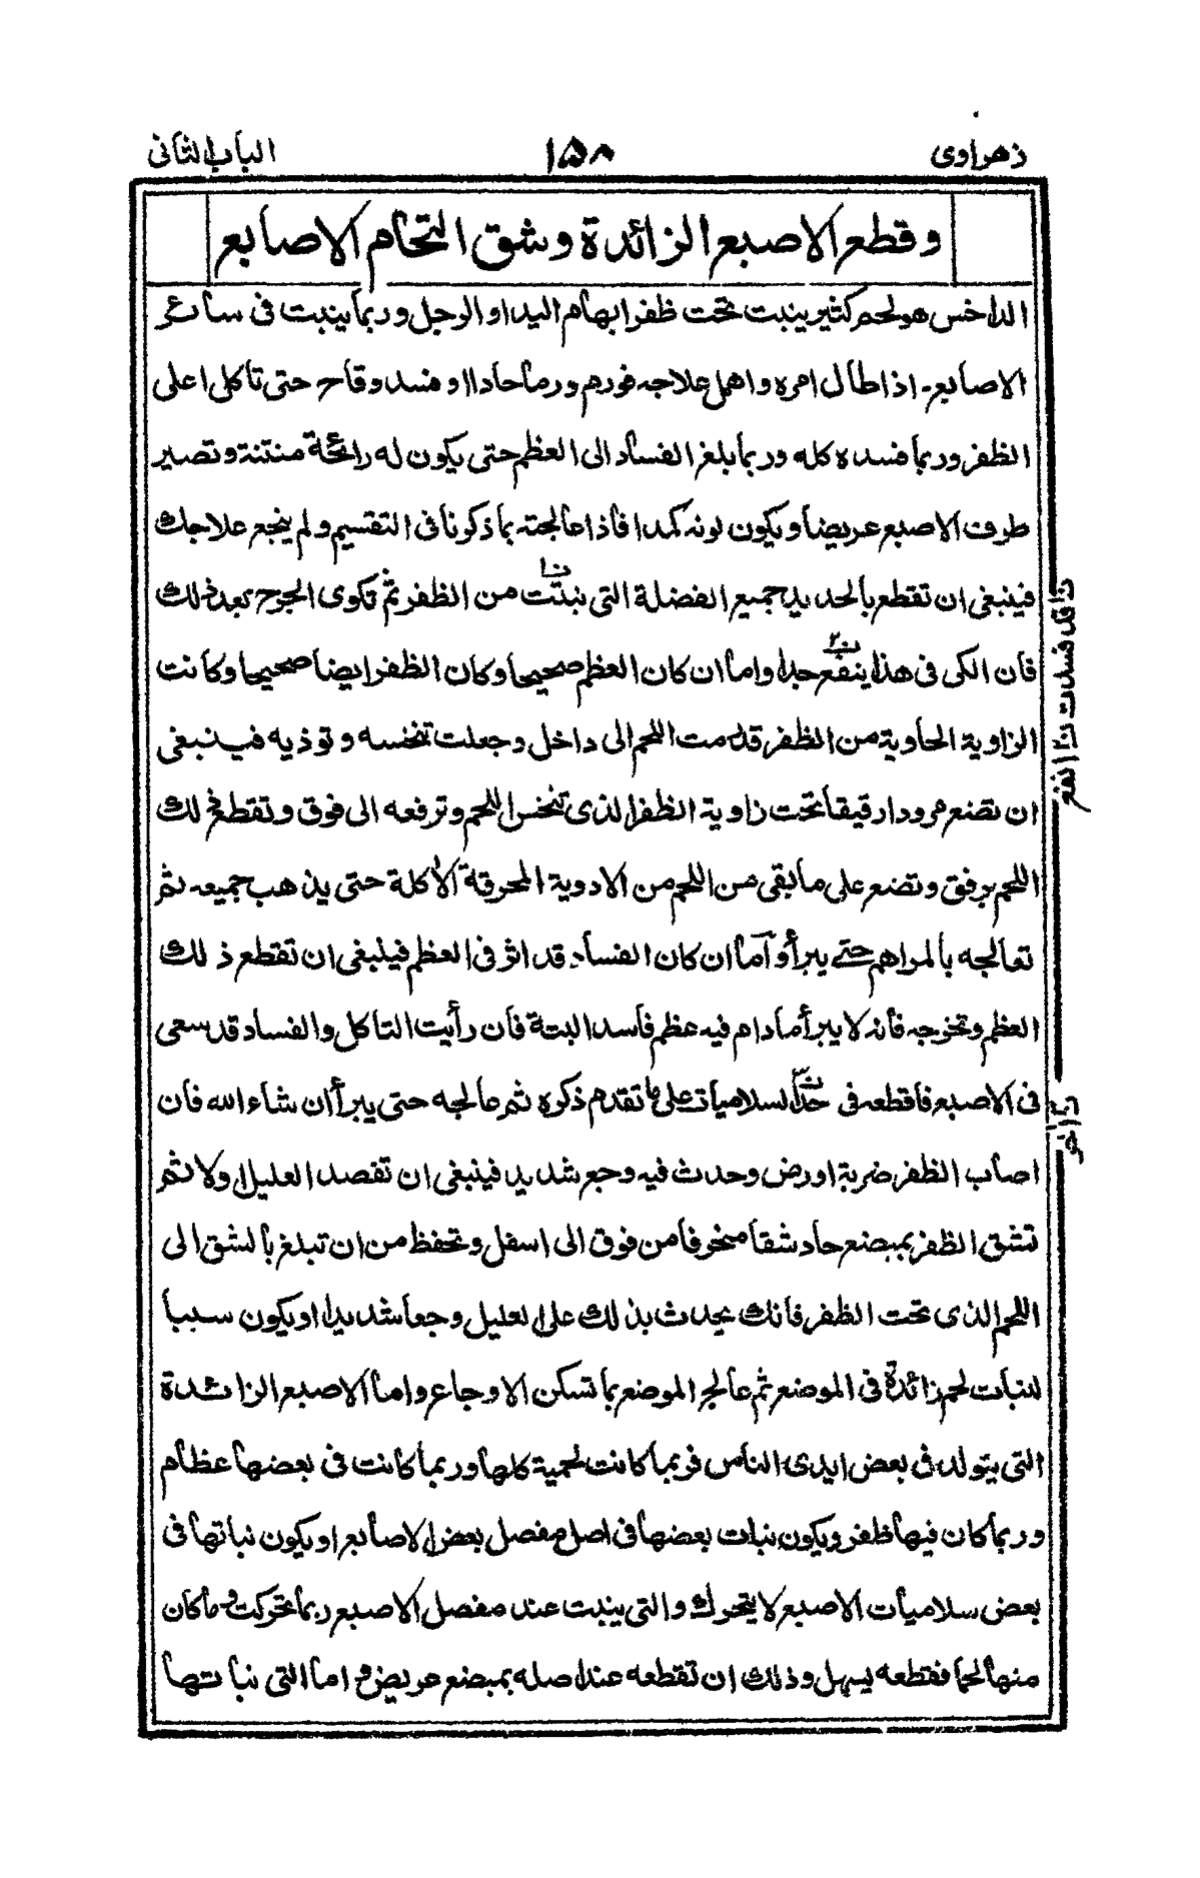 زهراوی ١٥٨ الباب الثانی
وقطع الاصبع الزائدة وشق التحام الاصابع
الداخس هو لحم کثیر ینبت تحت ظفر ابهام الید او الرجل وربما ینبت فی سائر
الاصابع۔ اذا طال امره واهمل علاجه فورم ورما حادا او فسد وقاح حتی تاکل اعلی
الظفر وربما فسده کله وربما بلغ الفساد الی العظم حتی یکون له رائحة منتنة وتصیر
طرف الاصبع عریضا ویکون لونه کمدا فاذا عالجته بما ذکرنا فی التقسیم ولم ینجع علاجك
فینبغی ان تقطع بالحدید جمیع الفضلة التی نبتت من الظفر ثم تکوی الجرح بعد ذلك
فان الکی فی هذا ینفع جدا واما ان کان العظم صحیحا وکان الظفر ایضا صحیحا وکانت
الزاویة الحاویة من الظفر قد رمت اللحم الی داخل وجعلت تنخسه وتوذیه فینبغی
ان تضع مرودا رقیقا تحت زاویة الظفر الذی تنخس اللحم وترفعه الی فوق وتقطع ذلك
اللحم برفق وتضع علی ما بقی من اللحم من الادویة المحرقة الاکلة حتی یذهب جمیعه ثم
تعالجه بالمراهم حتی یبرأ واما ان کان الفساد قد اثر فی العظم فینبغی ان تقطع ذلك
العظم وتخرجه فانه لا یبرأ ما دام فیه عظم فاسد البتة فان رأیت التاکل والفساد قد سعی
فی الاصبع فاقطعه فی حد السلامیات علی ما تقدم ذکره ثم عالجه حتی یبرأ ان شاء الله فان
اصاب الظفر ضربة او رض وحدث فیه وجع شدید فینبغی ان تفصد العلیل اولا ثم
تشق الظفر بمبضع حاد شقا منحرفا من فوق الی اسفل وتحفظ من ان تبلغ بالشق الی
اللحم الذی تحت الظفر فانك یحدث بذلك علی العلیل وجعا شدیدا او یکون سببا
لنبات لحم زائدة فی الموضع ثم عالج الموضع بما تسکن الاوجاع واما الاصبع الزائدة
التی یتولد فی بعض ایدی الناس فربما کانت لحمیة کلها وربما کانت فی بعضها عظام
وربما کان فیها ظفر ویکون نبات بعضها فی اصل مفصل بعض الاصابع او یکون نباتها فی
بعض سلامیات الاصبع لا یتحرك والتی ینبت عند مفصل الاصبع ربما تحرکت وما کان
منها لحما فقطعه یسهل وذلك ان تقطعه عند اصله بمبضع عریض واما التی نباتها
ن١ قد فسدت ن٢ انفع
ن٣ اخر